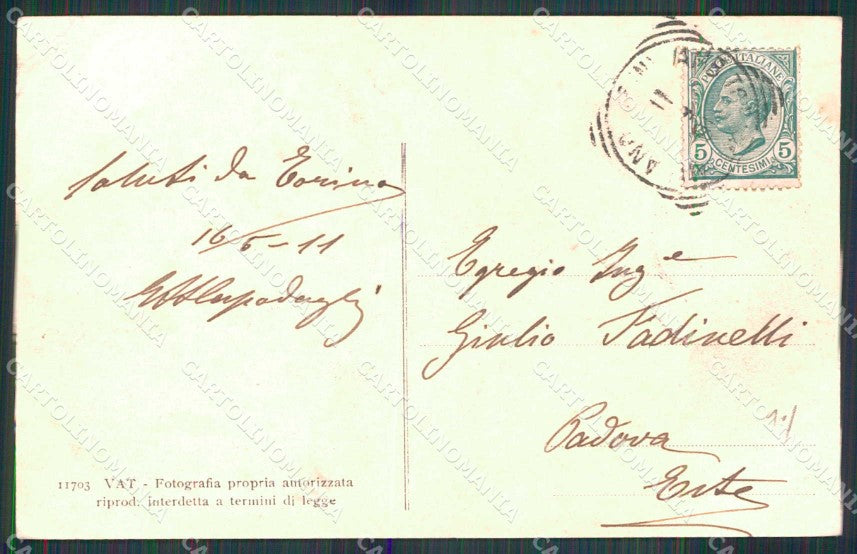 Saluti da Torino
16/5-11
Egregio Ing.e
Giulio Fadinelli
Padova
Este
11703 VAT - Fotografia propria autorizzata
riprod. interdetta a termini di legge
POSTE ITALIANE
5 CENTESIMI 5
CARTOLINOMANIA